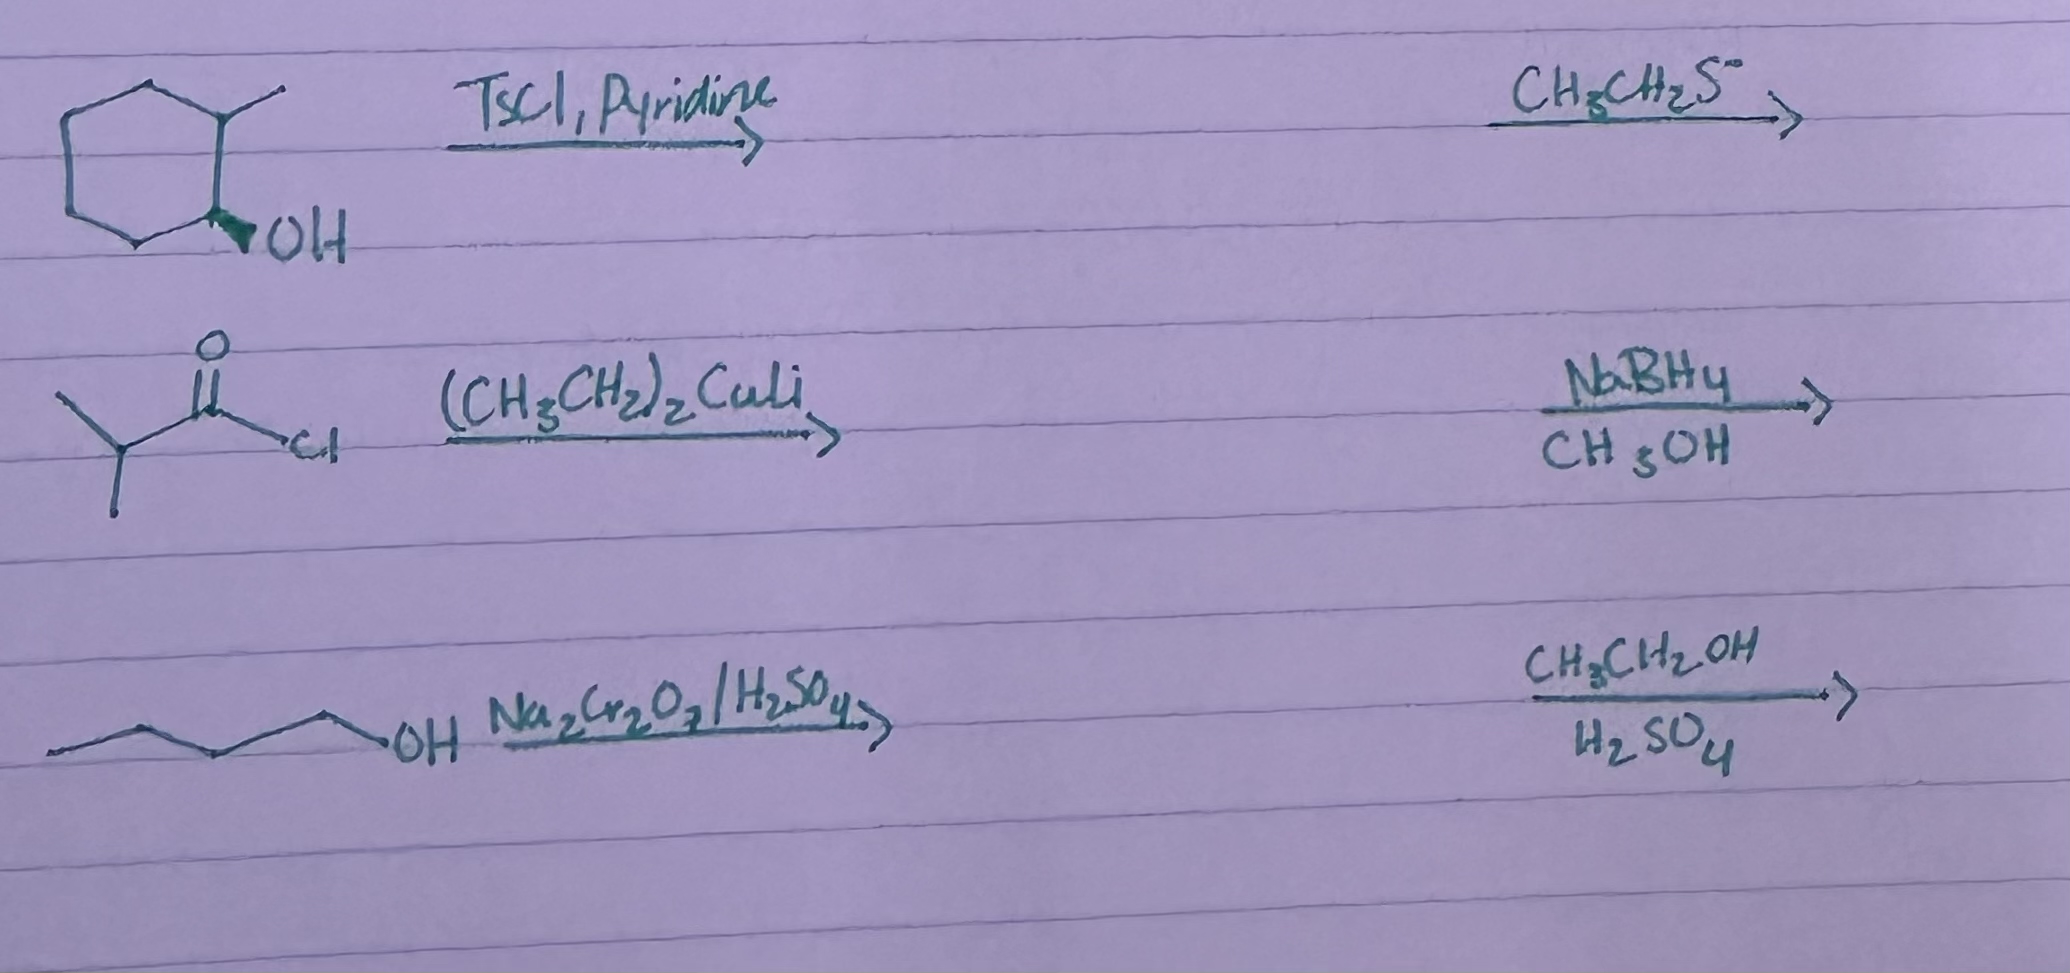 TsCl, Pyridine CH3CH2S-
OH
O
Cl (CH3CH2)2CuLi NaBH4
CH3OH
OH Na2Cr2O7/H2SO4 CH3CH2OH
H2SO4